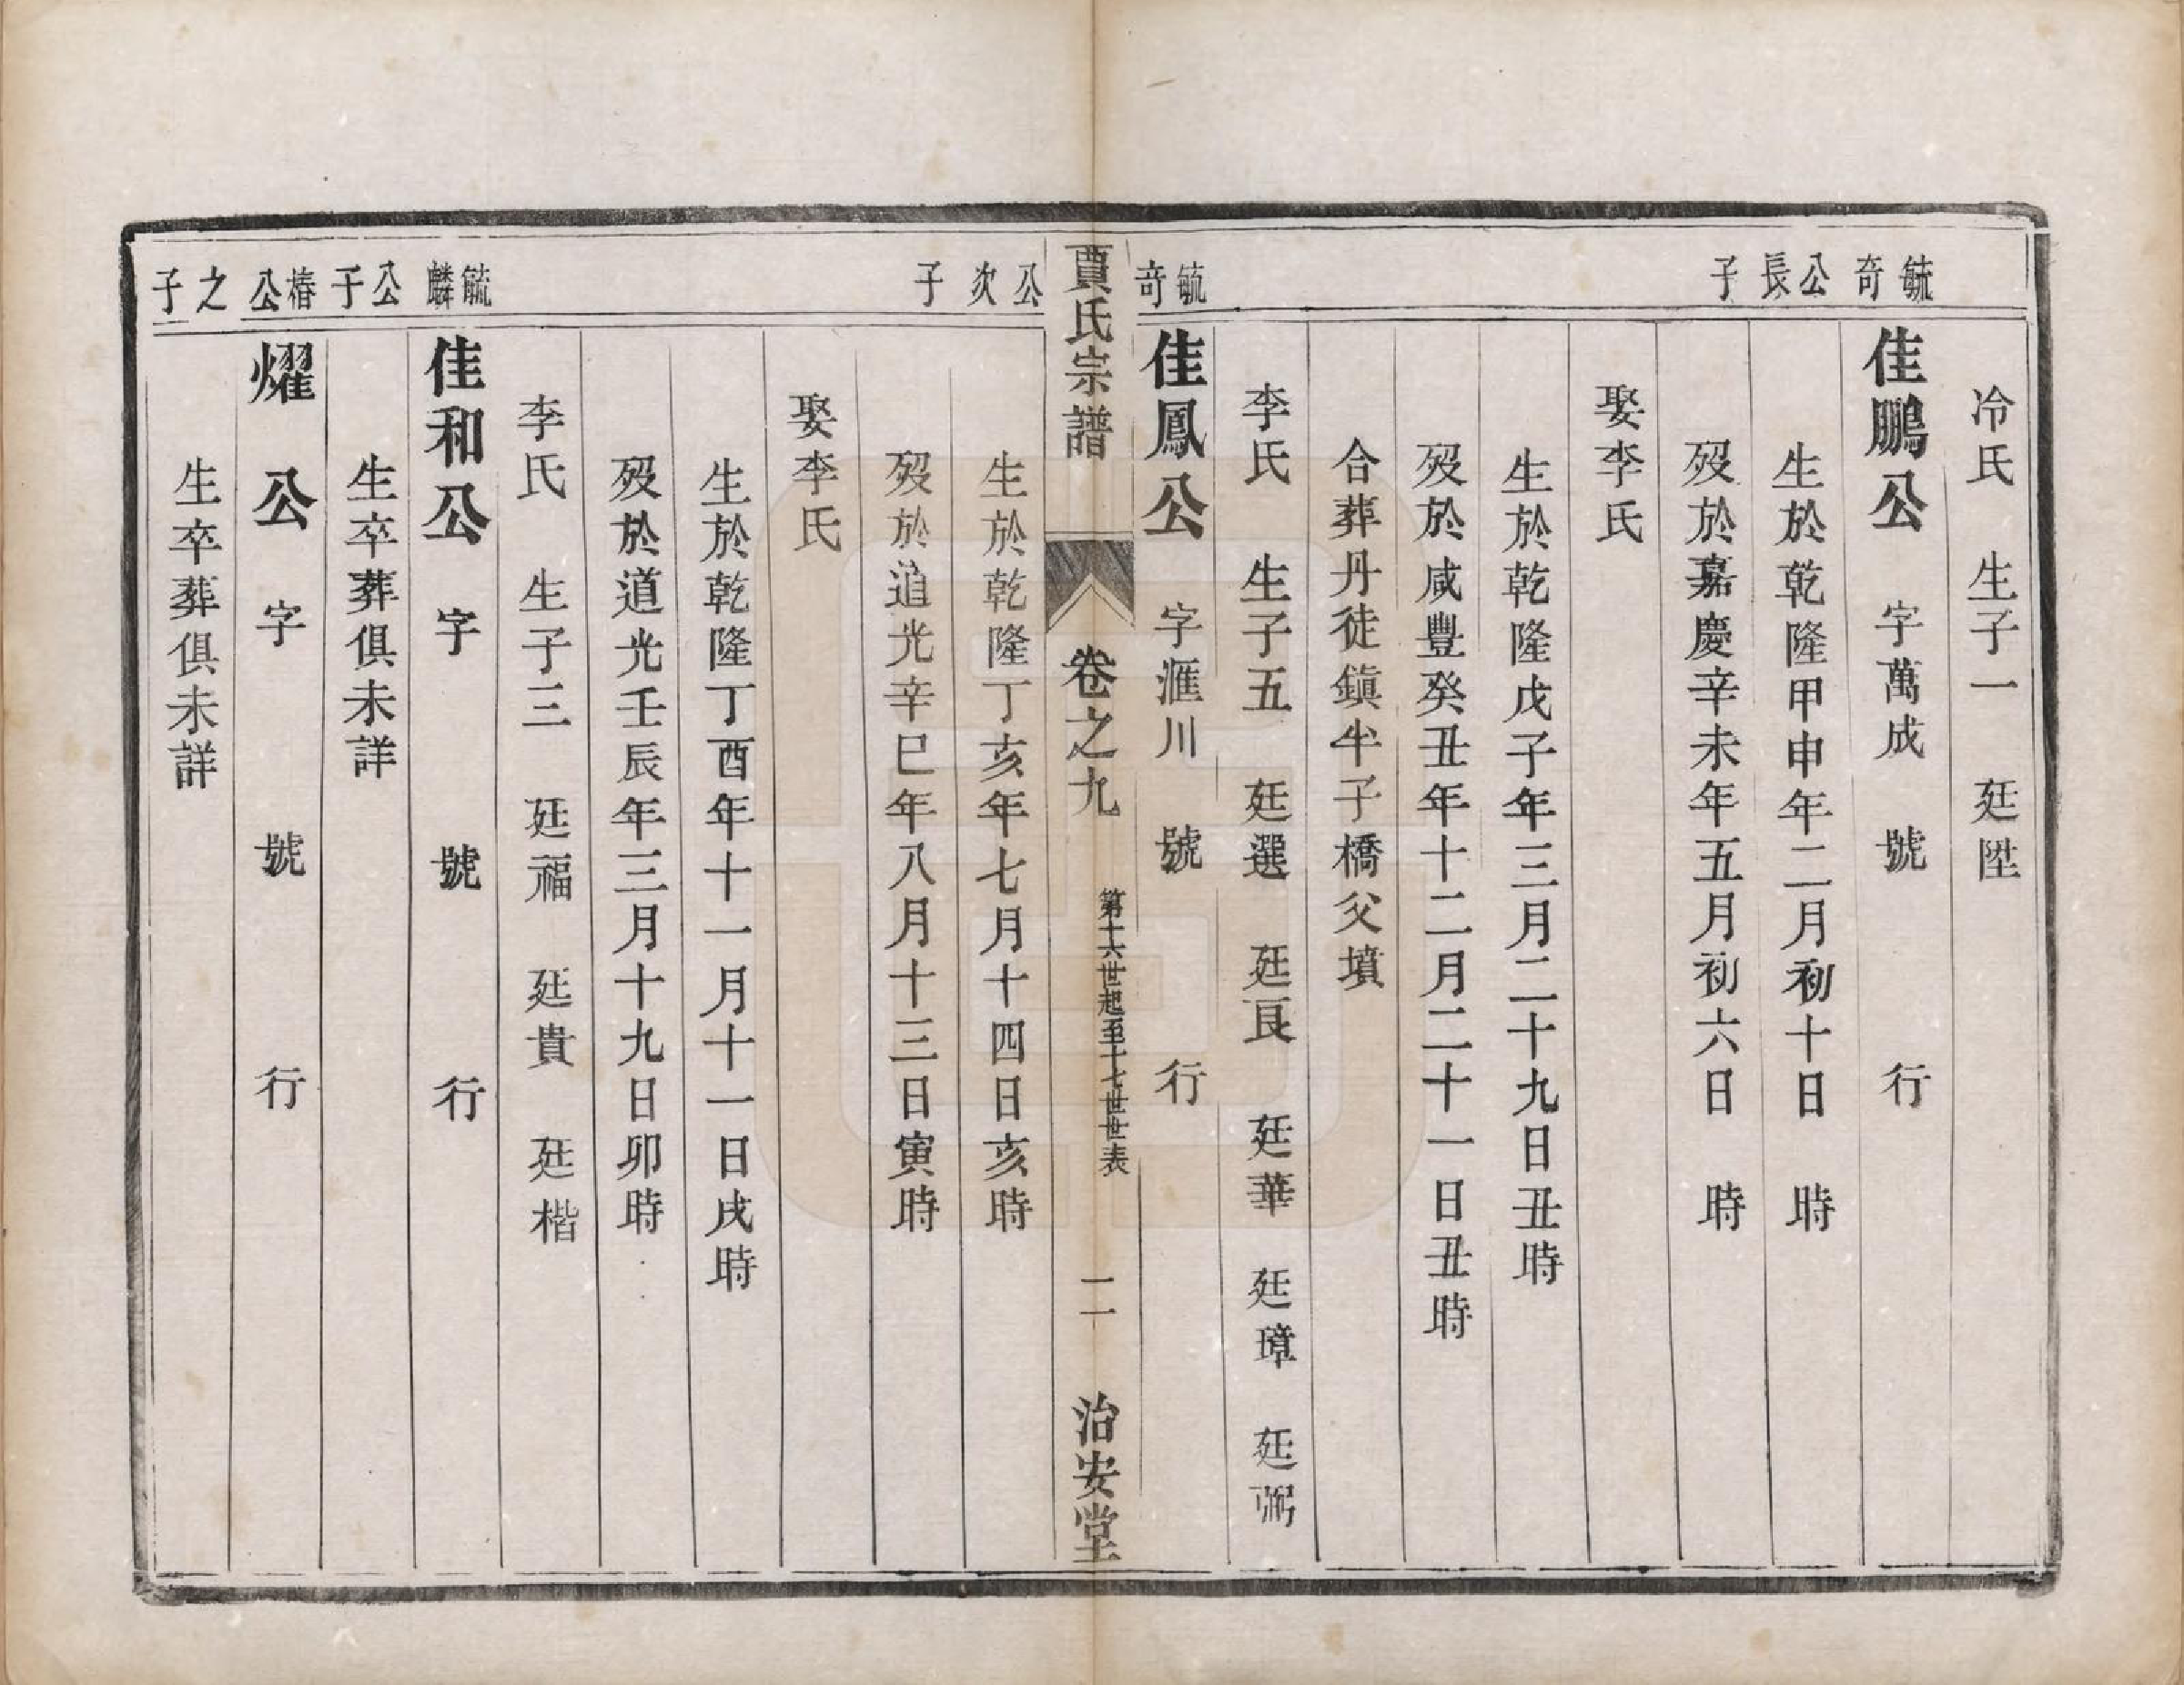 冷氏　生子一　廷陞
毓奇公長子
佳鵬公　字萬成　號　行
生於乾隆甲申年二月初十日　時
歿於嘉慶辛未年五月初六日　時
娶李氏
生於乾隆戊子年三月二十九日丑時
歿於咸豐癸丑年十二月二十一日丑時
合葬丹徒鎮半子橋父墳
李氏　生子五　廷選　廷良　廷華　廷璋　廷弼
毓奇公次子
佳鳳公　字滙川　號　行
賈氏宗譜　卷之九　第十六世起至十七世世表　二　治安堂
生於乾隆丁亥年七月十四日亥時
歿於道光辛巳年八月十三日寅時
娶李氏
生於乾隆丁酉年十一月十一日戌時
歿於道光壬辰年三月十九日卯時
李氏　生子三　廷福　廷貴　廷楷
毓麟公子
佳和公　字　號　行
生卒葬俱未詳
椿公之子
燿公　字　號　行
生卒葬俱未詳